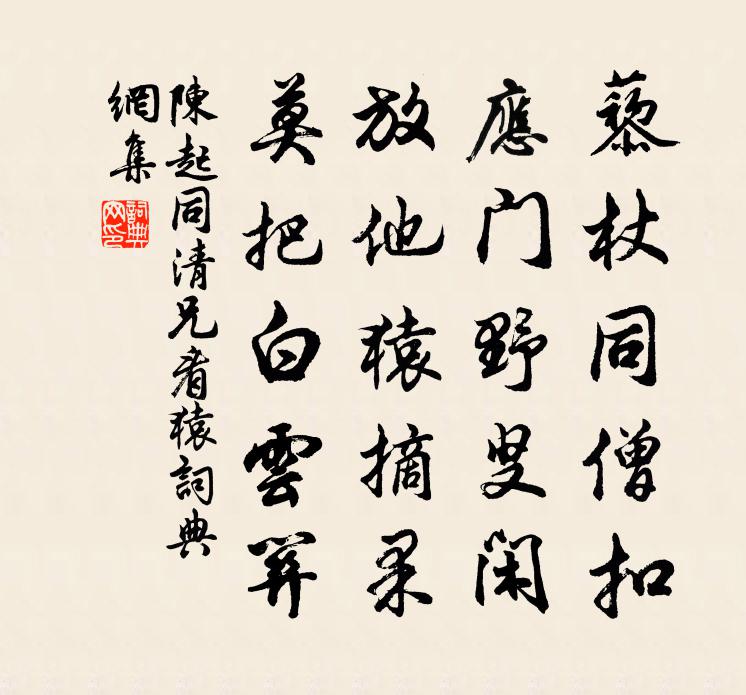 藜杖同僧扣
應门野叟閑
放他猿摘果
莫把白雲關
陳起同清兄看猿詞典
網集
詞典網印